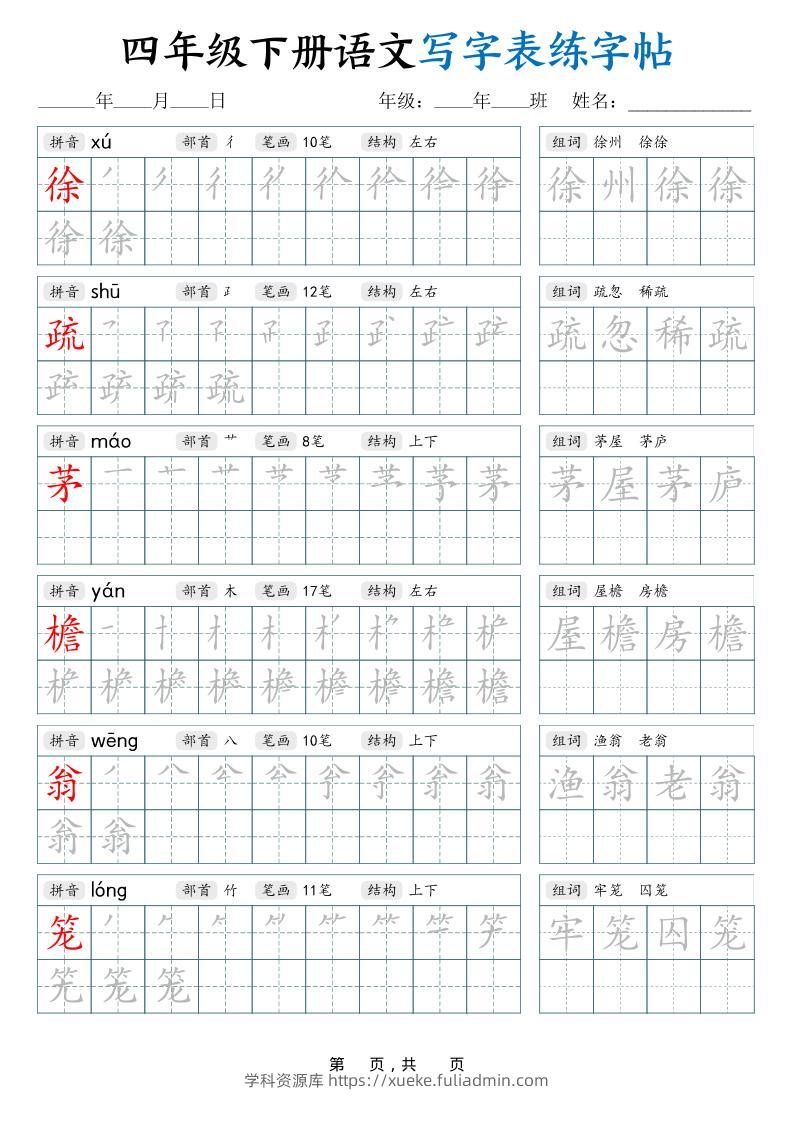 四年级下册语文写字表练字帖
______年____月____日 年级：____年____班 姓名：____________
拼音 xú 部首 彳 笔画 10笔 结构 左右 组词 徐州 徐徐
徐 徐 州 徐 徐
徐
拼音 shū 部首 𤴔 笔画 12笔 结构 左右 组词 疏忽 稀疏
疏 疏 忽 稀 疏
疏
拼音 máo 部首 艹 笔画 8笔 结构 上下 组词 茅屋 茅庐
茅 茅 茅 屋 茅 庐
拼音 yán 部首 木 笔画 17笔 结构 左右 组词 屋檐 房檐
檐 屋 檐 房 檐
檐
拼音 wēng 部首 八 笔画 10笔 结构 上下 组词 渔翁 老翁
翁 渔 翁 老 翁
翁
拼音 lóng 部首 竹 笔画 11笔 结构 上下 组词 牢笼 囚笼
笼 牢 笼 囚 笼
笼
第 页，共 页
学科资源库 https://xueke.fuliadmin.com